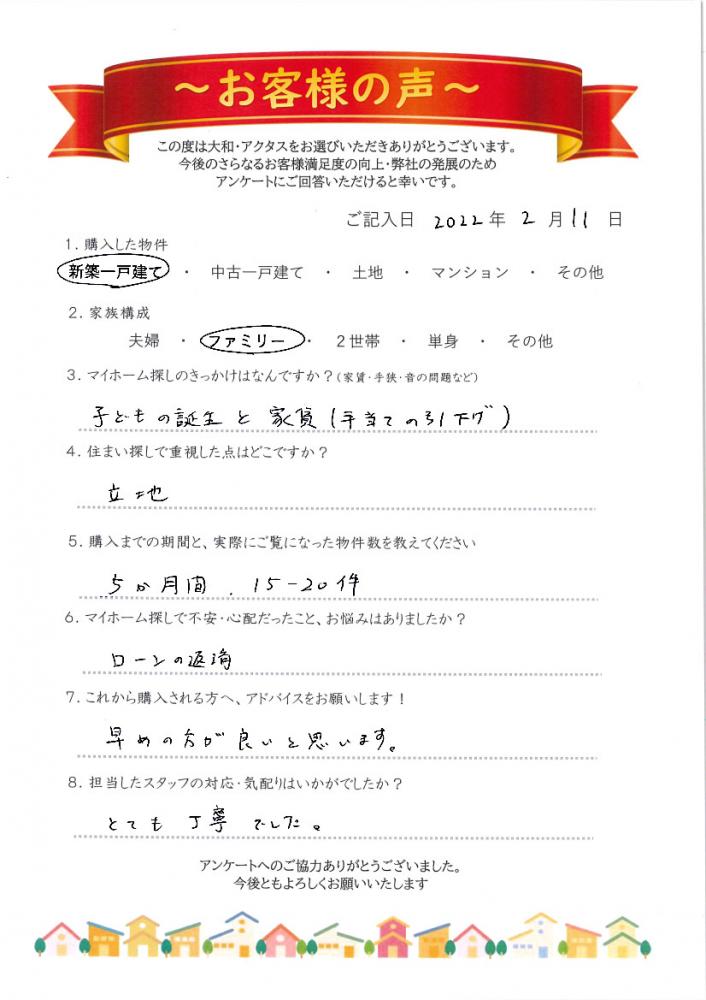 ～お客様の声～
この度は大和・アクタスをお選びいただきありがとうございます。
今後のさらなるお客様満足度の向上・弊社の発展のため
アンケートにご回答いただけると幸いです。
ご記入日 2022年 2月 11日
1．購入した物件
新築一戸建て ・ 中古一戸建て ・ 土地 ・ マンション ・ その他
2．家族構成
夫婦 ・ ファミリー ・ 2世帯 ・ 単身 ・ その他
3．マイホーム探しのきっかけはなんですか？（家賃・手狭・音の問題など）
子どもの誕生と家賃(手当ての引下げ)
4．住まい探しで重視した点はどこですか？
立地
5．購入までの期間と、実際にご覧になった物件数を教えてください
5か月間．15-20件
6．マイホーム探しで不安・心配だったこと、お悩みはありましたか？
ローンの返済
7．これから購入される方へ、アドバイスをお願いします！
早めの方が良いと思います。
8．担当したスタッフの対応・気配りはいかがでしたか？
とても丁寧でした。
アンケートへのご協力ありがとうございました。
今後ともよろしくお願いいたします